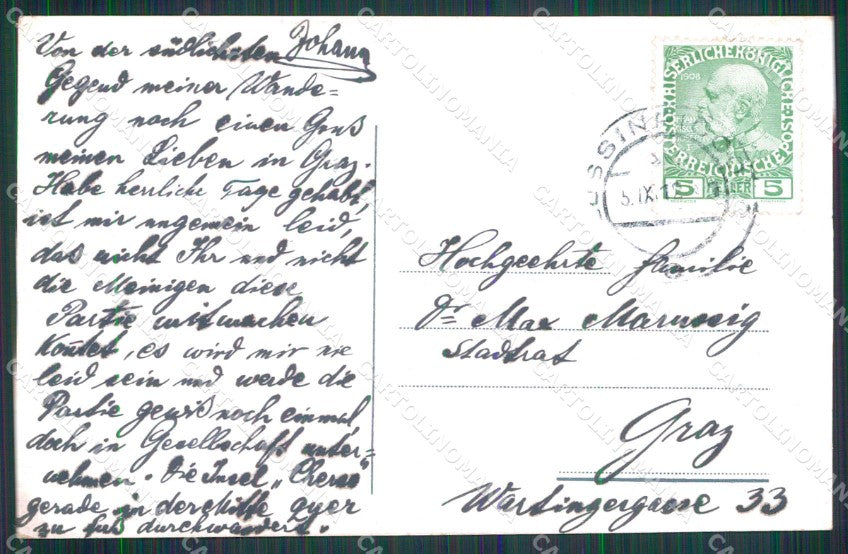 Von der südlichsten
Johann
Gegend meiner Wande=
rung noch einen Gruß
meinen Lieben in Graz.
Habe herrliche Tage gehabt,
ist mir ungemein leid,
das nicht Ihr und nicht
die Meinigen diese
Partie mitmachen
konntet, es wird mir nie
leid sein und werde die
Partie gewiß noch einmal
doch in Gesellschaft unter=
nehmen. Die Insel „Cherso"
gerade in der Mitte quer
zu fuß durchwandert.
KAISERLICHE KÖNIGLICHE
1908
ÖSTERREICHISCHE POST
5 HELLER 5
LUSSINPICCOLO
5.IX.1
Hochgeehrte familie
Dr Max Marussig
Stadtrat
Graz
Wartingergasse 33
CARTOLINOMANIA